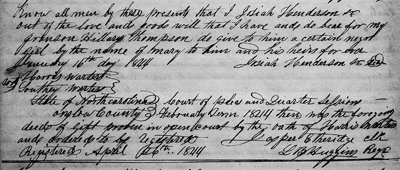 Know all men by these presents that I Josiah Henderson Sr
out of the love and good will that I have and do bear for my
Granson Hillary Thompson do give to him a certain negro
girl by the name of Mary to him and his heirs for ever
January 16th day 1824 Josiah Henderson Sr
Test Harris
State of North carolina Court of pleas and Quarter Session
Onslow County February Term 1824 then was the foregoing
deed of Gift proven in open court by the oath of Harris
and ordered to be registered Jasper Etheridge Clk
Registered April 26th 1824 Regr